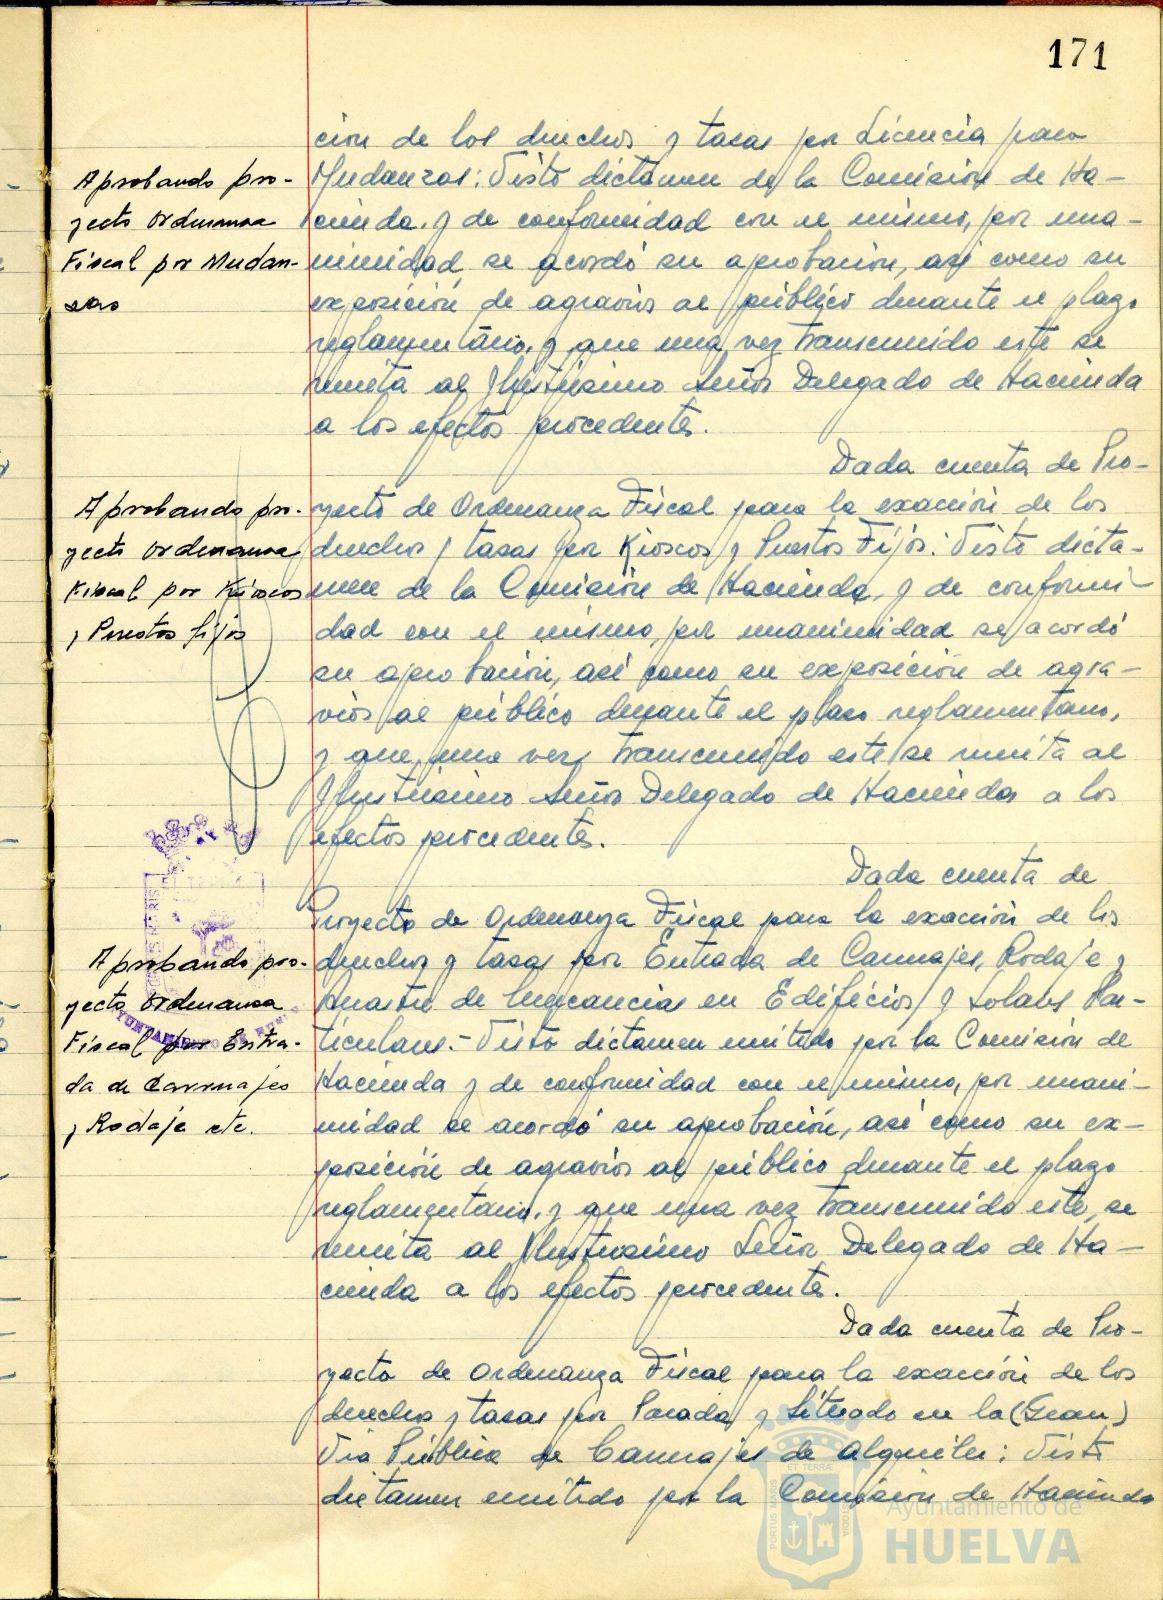 171
ción de los derechos y tasas por Licencia para
Mudanzas: Visto dictamen de la Comisión de Ha-
cienda, y de conformidad con el mismo, por una-
nimidad se acordó su aprobación, así como su
exposición de agravios al público durante el plazo
reglamentario, y que una vez transcurrido este se
remita al Ilustrísimo Señor Delegado de Hacienda
a los efectos procedentes.
Aprobando pro-
yecto Ordenanza
Fiscal por Mudan-
zas
Dada cuenta de Pro-
yecto de Ordenanza Fiscal para la exacción de los
derechos y tasas por Kioscos y Puestos Fijos: Visto dicta-
men de la Comisión de Hacienda, y de conformi-
dad con el mismo, por unanimidad se acordó
su aprobación, así como su exposición de agra-
vios al público durante el plazo reglamentario,
y que una vez transcurrido este se remita al
Ilustrísimo Señor Delegado de Hacienda a los
efectos procedentes.
Aprobando pro-
yecto Ordenanza
Fiscal por Kioscos
y Puestos fijos
Dada cuenta de
Proyecto de Ordenanza Fiscal para la exacción de los
derechos y tasas por Entrada de Carruajes, Rodaje y
Arrastre de Mercancias en Edificios y Solares Par-
ticulares.- Visto dictamen emitido por la Comisión de
Hacienda y de conformidad con el mismo, por unani-
midad se acordó su aprobación, así como su ex-
posición de agravios al público durante el plazo
reglamentario, y que una vez transcurrido este, se
remita al Ilustrísimo Señor Delegado de Ha-
cienda a los efectos procedentes.
Aprobando pro-
yecto Ordenanza
Fiscal por Entra-
da de Carruajes
y Rodaje etc.
AYUNTAMIENTO DE HUELVA
Dada cuenta de Pro-
yecto de Ordenanza Fiscal para la exacción de los
derechos y tasas por Parada y Situado en la (Gran)
Via Pública de Carruajes de Alquiler: Visto
dictamen emitido por la Comisión de Hacienda
PORTUS MARIS ET TERRÆ CUSTODIA
Ayuntamiento de
HUELVA